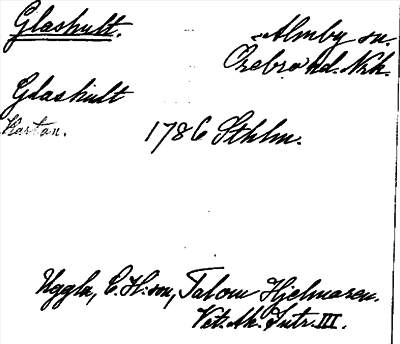 Glashult.
Almby sn.
Örebro hd. Nrk.
Glashult
Kartan.
1786 Sthlm.
Uggla, C. H:son, Tal om Hjelmaren.
Vet. Ak. Intr. III.